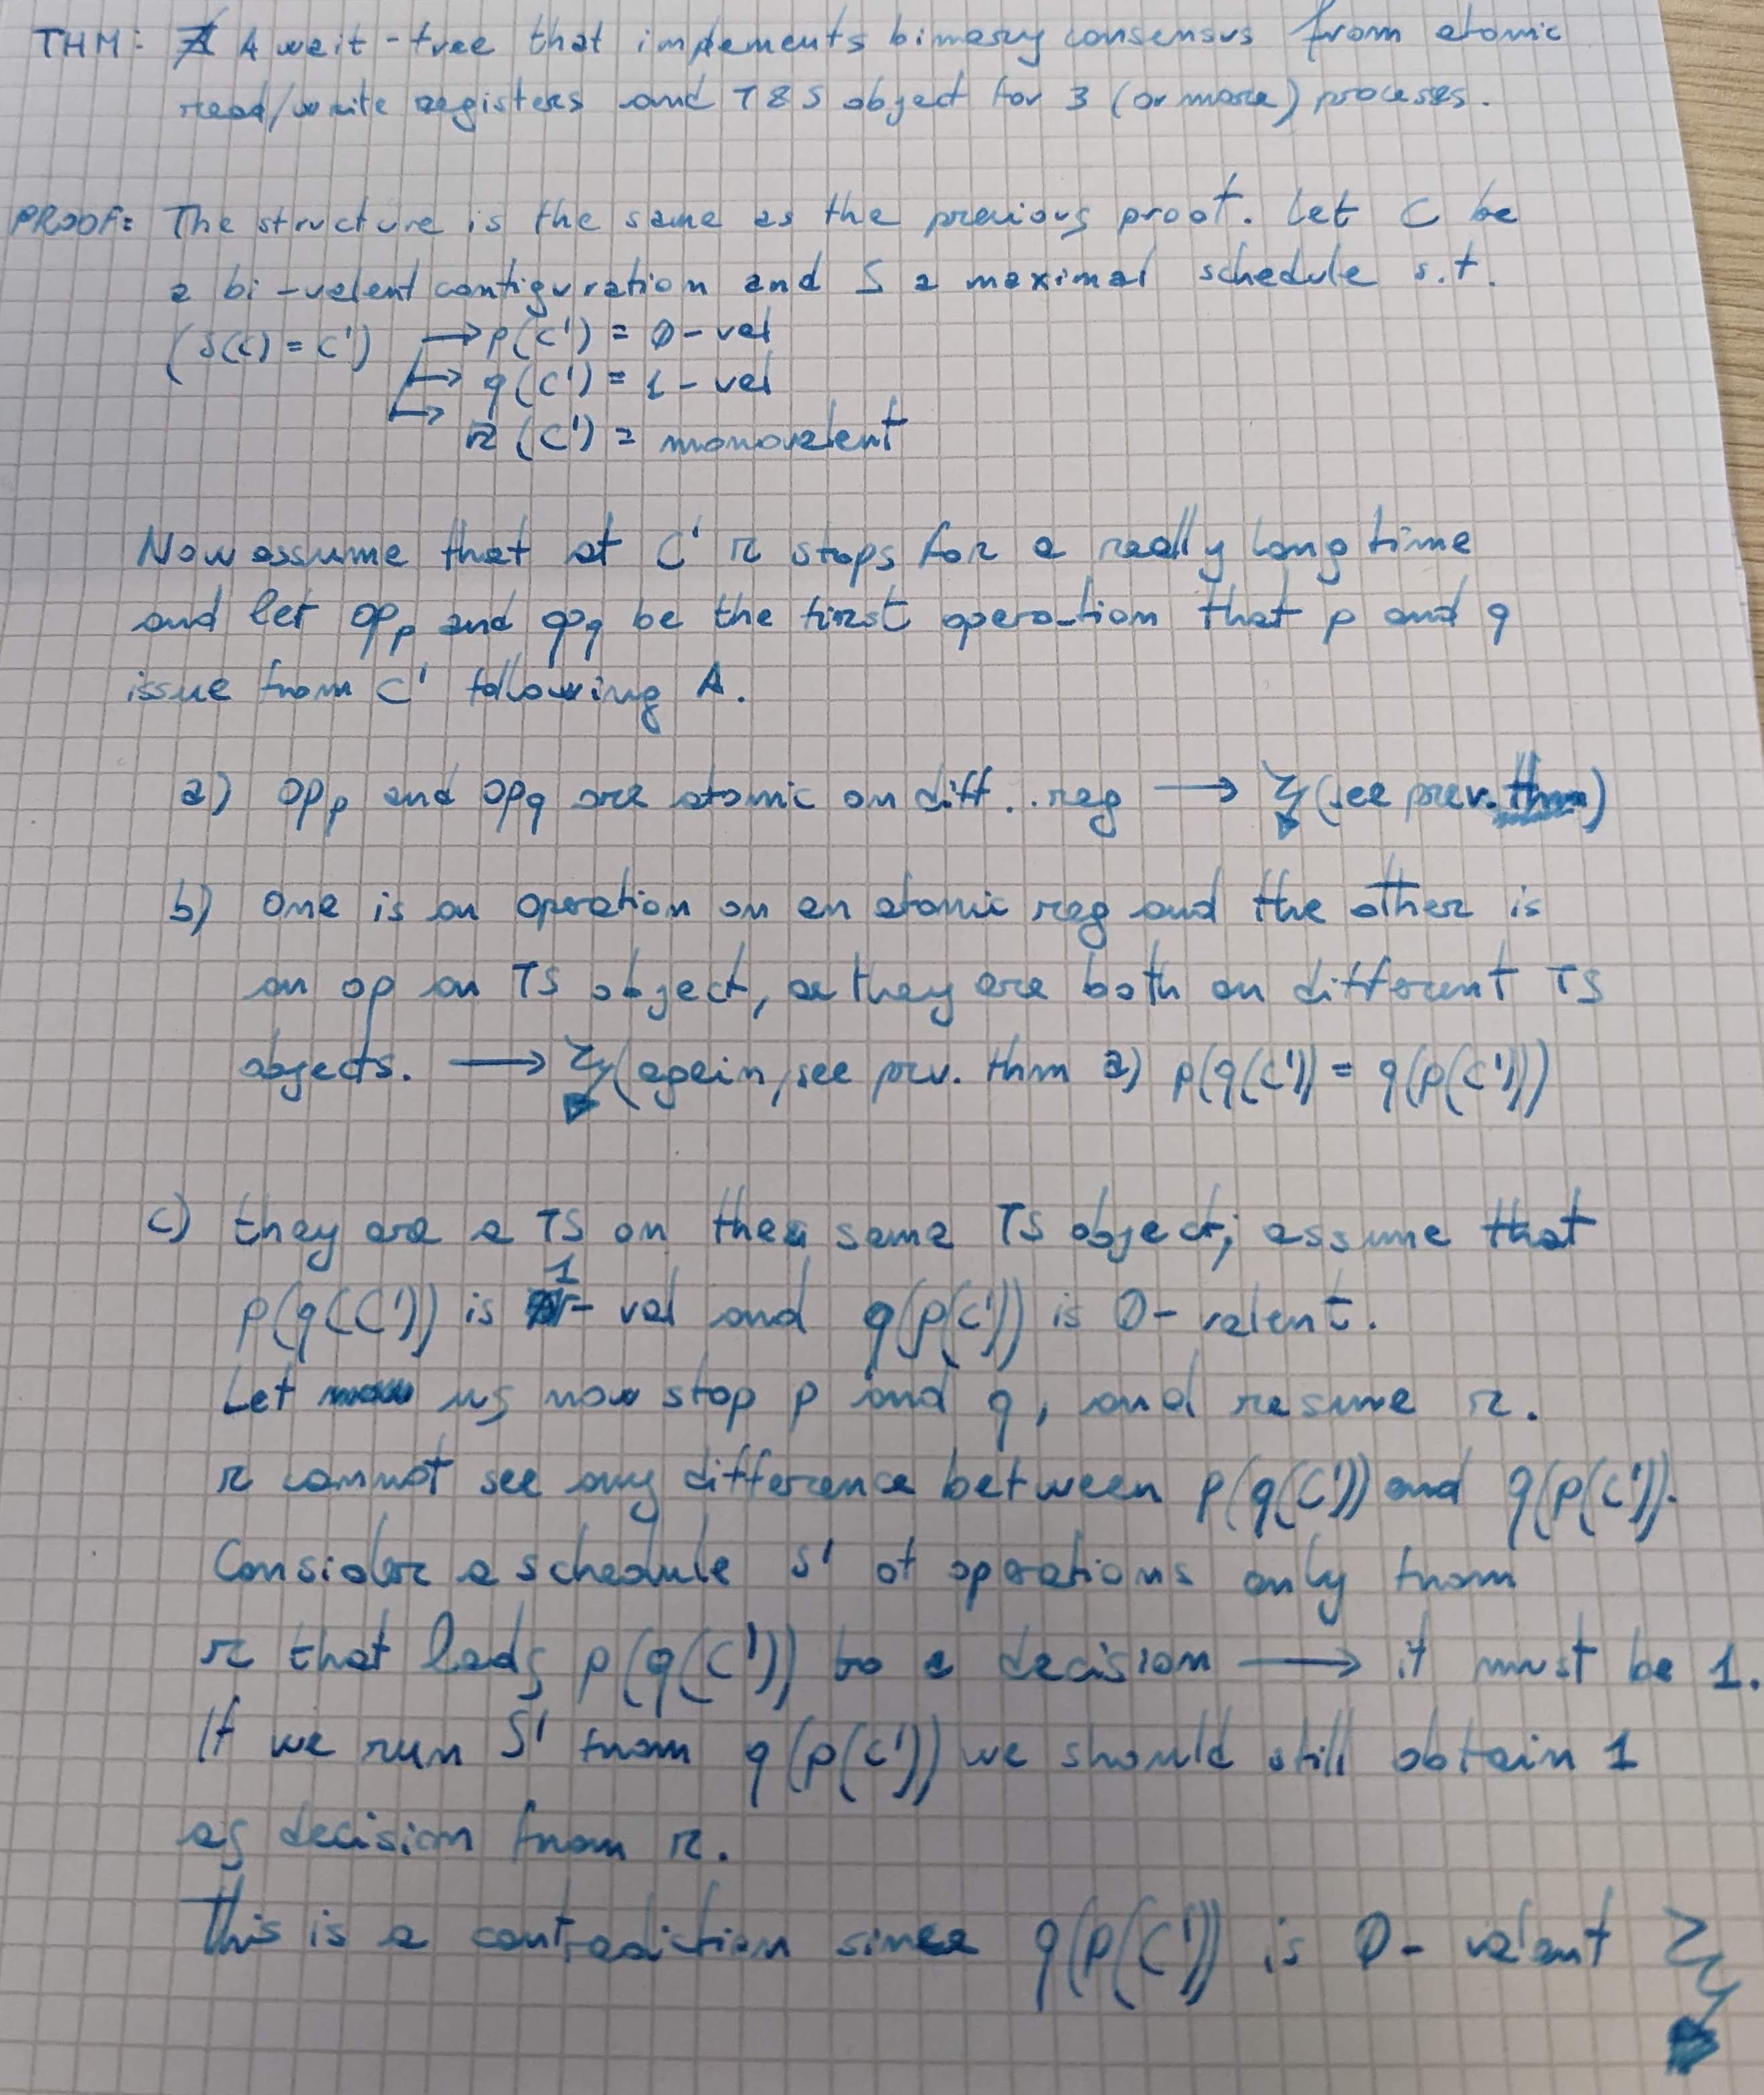 THM: ∄ A wait-free that implements binary consensus from atomic
read/write registers and T&S object for 3 (or more) processes.
PROOF: The structure is the same as the previous proof. Let C be
a bi-valent configuration and S a maximal schedule s.t.
(S(C) = C') → p(C') = 0-val
→ q(C') = 1-val
→ r(C') = monovalent
Now assume that at C' r stops for a really long time
and let op_p and op_q be the first operation that p and q
issue from C' following A.
a) op_p and op_q are atomic on diff. reg → (see prev. thm)
b) One is an operation on an atomic reg and the other is
an op on TS object, or they are both on different TS
objects. → (again, see prv. thm a) p(q(C')) = q(p(C'))
c) they are a TS on the same TS object; assume that
p(q(C')) is 1-val and q(p(C')) is 0-valent.
Let us now stop p and q, and resume r.
r cannot see any difference between p(q(C')) and q(p(C')).
Consider a schedule S' of operations only from
r that leads p(q(C')) to a decision → it must be 1.
If we run S' from q(p(C')) we should still obtain 1
as decision from r.
This is a contradiction since q(p(C')) is 0-valent